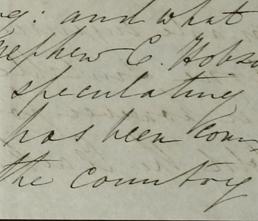 : and what
nephew E. Hobs
speculating
has been com
the country